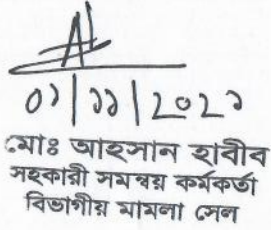 ০১/১১/২০২১
মোঃ আহসান হাবীব
সহকারী সমন্বয় কর্মকর্তা
বিভাগীয় মামলা সেল